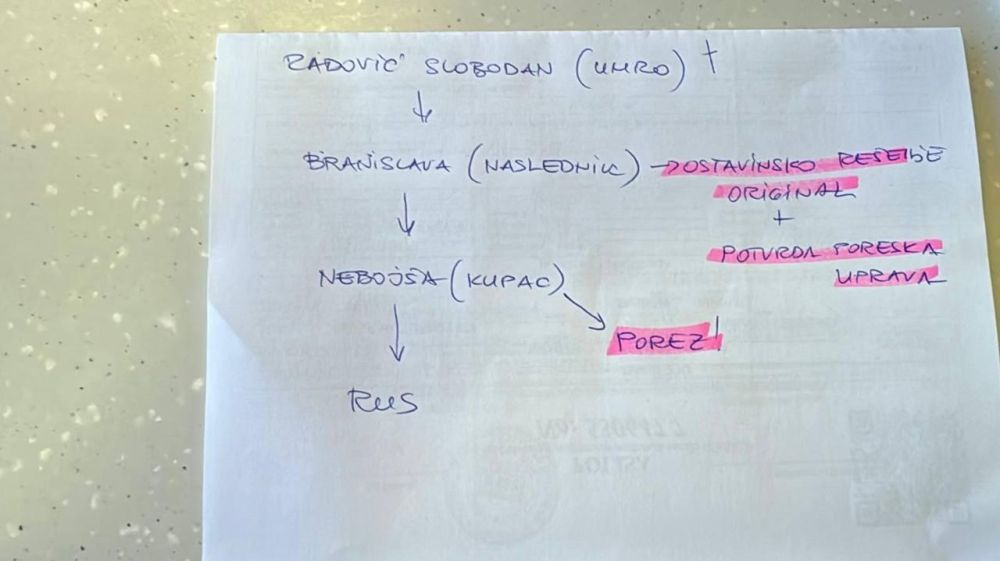 RADOVIĆ SLOBODAN (UMRO) †
BRANISLAVA (NASLEDNIK) → OSTAVINSKO REŠENJE
ORIGINAL
+
POTVRDA PORESKA
UPRAVA
NEBOJŠA (KUPAC)
POREZ!
RUS